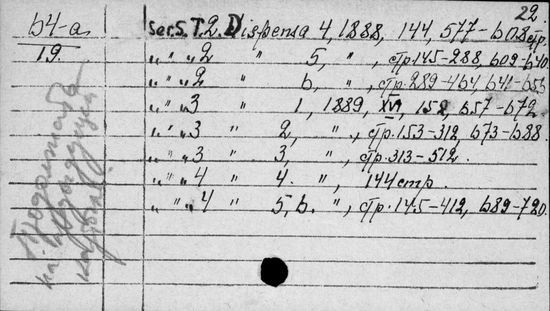 22.
64-a
19.
Ser. S. T. 2. Dispensa 4, 1888, 144, 577-608 стр.
„ " „ 2 " 5, ", стр. 145-288, 609-640
„ " „ 2 " 6, ", стр. 289-464, 641-656
„ " „ 3 " 1, 1889, XVI, 152, 657-672
„ " „ 3 " 2, ", стр. 153-312, 673-688.
„ " „ 3 " 3, ", стр. 313-512.
„ " „ 4 " 4. ", 144 стр.
„ " „ 4 " 5, 6. ", стр. 145-412, 689-720.
на